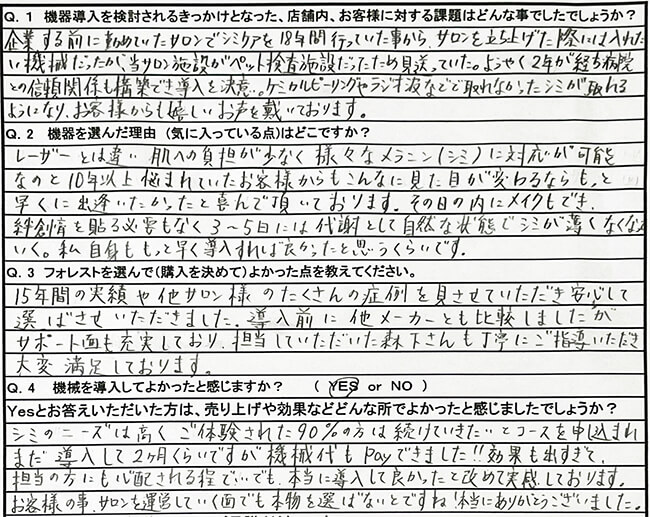 Q. 1 機器導入を検討されるきっかけとなった、店舗内、お客様に対する課題はどんな事でしたでしょうか?
企業する前に勤めていたサロンでシミケアを18年間行っていた事から、サロンを立ち上げた際には入れた
い機械だったが、当サロン施設がペット検査施設だったため見送っていた。ようやく2年が経ち病院
との信頼関係も構築でき導入を決意。ケミカルピーリングやラジオ波などで取れなかったシミが取れる
ようになり、お客様からも嬉しいお声を戴いております。
Q. 2 機器を選んだ理由(気に入っている点)はどこですか?
レーザーとは違い肌への負担が少なく様々なメラニン(シミ)に対応が可能
なのと10年以上悩まれていたお客様からもこんなに見た目が変わるならもっと
早くに出逢いたかったと喜んで頂いております。その日の内にメイクもでき、
絆創膏を貼る必要もなく3~5日には代謝として自然な状態でシミが薄くなって
いく。私自身ももっと早く導入すれば良かったと思うくらいです。
Q. 3 フォレストを選んで(購入を決めて)よかった点を教えてください。
15年間の実績や他サロン様のたくさんの症例を見させていただき安心して
選ばせいただきました。導入前に他メーカーとも比較しましたが
サポート面も充実しており、担当していただいた森下さんも丁寧にご指導いただき
大変満足しております。
Q. 4 機械を導入してよかったと感じますか? ( YES or NO )
Yesとお答えいただいた方は、売り上げや効果などどんな所でよかったと感じましたでしょうか?
シミのニーズは高くご体験された90%の方は続けていきたいとコースを申込まれ
まだ導入して2ヶ月くらいですが機械代もPayできました!!効果も出すぎて、
担当の方にも心配される程でいでも、本当に導入して良かったと改めて実感しております。
お客様の事、サロンを運営していく面でも本物を選ばないとですね!本当にありがとうございました。